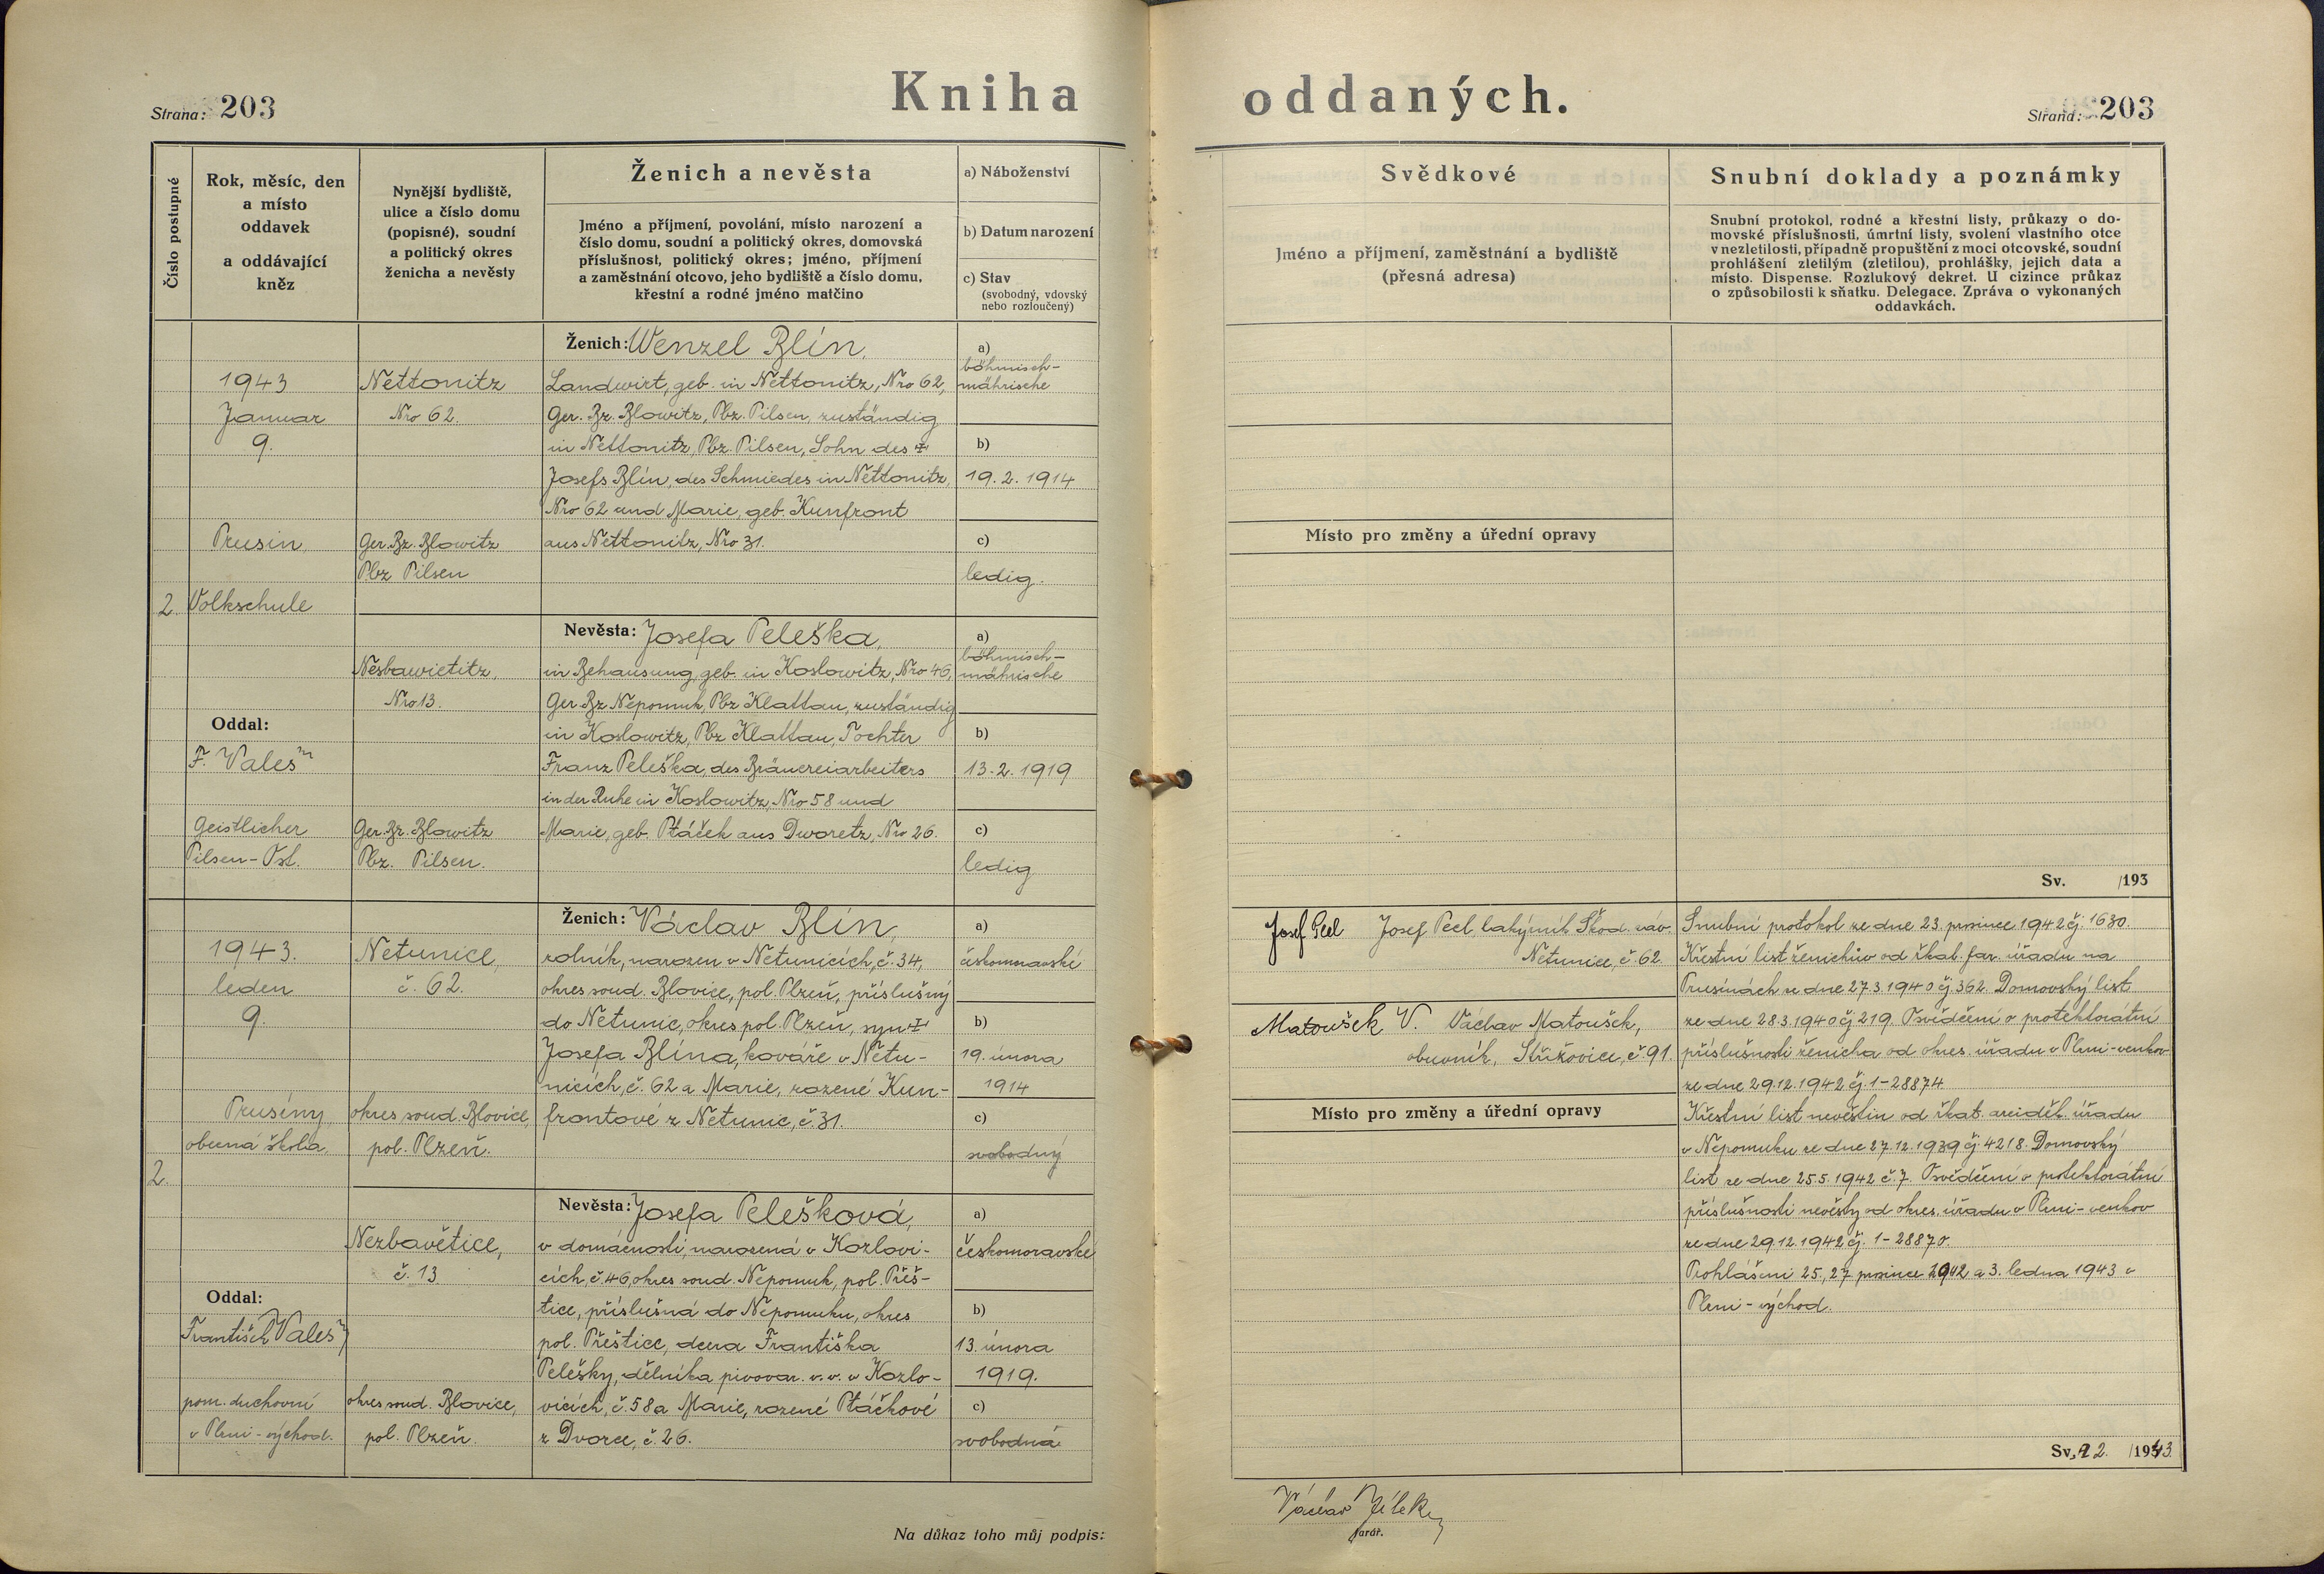 Kniha oddaných.
Strana: 203
Strana: 203
Číslo postupné
Rok, měsíc, den
a místo
oddavek
a oddávající
kněz
Nynější bydliště,
ulice a číslo domu
(popisné), soudní
a politický okres
ženicha a nevěsty
Ženich a nevěsta
Jméno a příjmení, povolání, místo narození a
číslo domu, soudní a politický okres, domovská
příslušnost, politický okres; jméno, příjmení
a zaměstnání otcovo, jeho bydliště a číslo domu,
křestní a rodné jméno matčino
a) Náboženství
b) Datum narození
c) Stav
(svobodný, vdovský
nebo rozloučený)
Svědkové
Jméno a příjmení, zaměstnání a bydliště
(přesná adresa)
Snubní doklady a poznámky
Snubní protokol, rodné a křestní listy, průkazy o do-
movské příslušnosti, úmrtní listy, svolení vlastního otce
v nezletilosti, případně propuštění z moci otcovské, soudní
prohlášení zletilým (zletilou), prohlášky, jejich data a
místo. Dispense. Rozlukový dekret. U cizince průkaz
o způsobilosti k sňatku. Delegace. Zpráva o vykonaných
oddavkách.
2.
1943
Januar
9.
Prusin
Volkschule
Oddal:
F. Vales
Geistlicher
Pilsen-Ost.
Nettonitz
Nro 62.
Ger. Bz. Blowitz
Pbz Pilsen
Nesbawietitz,
Nro 13.
Ger. Bz. Blowitz
Pbz. Pilsen.
Ženich: Wenzel Blín,
Landwirt, geb. in Nettonitz, Nro 62,
Ger. Bz. Blowitz, Pbz. Pilsen, zuständig
in Nettonitz, Pbz. Pilsen, Sohn des
Josefs Blín, des Schmiedes in Nettonitz,
Nro 62 und Marie, geb. Kunfront
aus Nettonitz, Nro 31.
a)
böhmisch-
mährische
b)
19. 2. 1914
c)
ledig.
Nevěsta: Josefa Peleška,
in Behausung, geb. in Koslowitz, Nro 46,
Ger. Bz Nepomuk, Pbz Klattau, zuständig
in Koslowitz, Pbz Klattau, Tochter
Franz Peleška, des Bräuereiarbeiters
in der Ruhe in Koslowitz, Nro 58 und
Marie, geb. Ptáček aus Dworetz, Nro 26.
a)
böhmisch-
mährische
b)
13. 2. 1919
c)
ledig
Místo pro změny a úřední opravy
Sv. /193
2.
1943.
leden
9.
Prusiny,
obecná škola.
Oddal:
František Vales
pom. duchovní
v Plzni-východ.
Netunice,
č. 62.
okres soud. Blovice,
pol. Plzeň.
Nezbavětice,
č. 13
okres soud. Blovice,
pol. Plzeň.
Ženich: Václav Blín,
rolník, narozen v Netunicích, č. 34,
okres soud. Blovice, pol. Plzeň, příslušný
do Netunic, okres pol. Plzeň, syn
Josefa Blína, kováře v Netu-
nicích, č. 62 a Marie, rozené Kun-
frontové z Netunic, č. 31.
a)
českomoravské
b)
19. února
1914
c)
svobodný
Nevěsta: Josefa Pelešková,
v domácnosti, narozená v Kozlovi-
cích, č. 46, okres soud. Nepomuk, pol. Přeš-
tice, příslušná do Nepomuku, okres
pol. Přeštice, dcera Františka
Pelešky, dělníka pivovar. v. v. v Kozlo-
vicích, č. 58 a Marie, rozené Ptáčkové
z Dvorce, č. 26.
a)
českomoravské
b)
13. února
1919.
c)
svobodná
Josef Pecl, Škod. záv.
Netunice, č. 62
Matoušek V. Václav Matoušek,
obuvník, Střížovice, č. 91.
Místo pro změny a úřední opravy
Snubní protokol ze dne 23. prosince 1942 čj. 1630.
Křestní list ženichův od řkat. far. úřadu na
Prusinách ze dne 27.3.1940 čj 362. Domovský list
ze dne 28.3.1940 čj 219. Osvědčení o protektorátní
příslušnosti ženicha od okres. úřadu v Plzni-venkov
ze dne 29.12.1942 čj. 1-28874
Křestní list nevěstin od řkat. arciděk. úřadu
v Nepomuku ze dne 27.12.1939 čj. 4218. Domovský
list ze dne 25.5.1942 č. 7. Osvědčení o protektorátní
příslušnosti nevěsty od okres. úřadu v Plzni-venkov
ze dne 29.12.1942 čj. 1-28870.
Prohlášení 25., 27. prosince 1942 a 3. ledna 1943 v
Plzni-východ.
Na důkaz toho můj podpis:
Václav Jílek
farář.